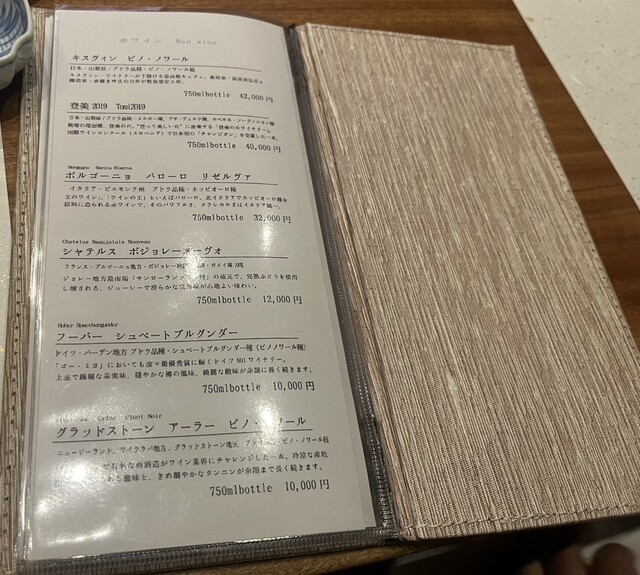 赤ワイン Red wine
キスヴィン ピノ・ノワール
日本・山梨県/ブドウ品種・ピノ・ノワール種
キスヴィン・ワイナリーが手掛ける最高峰キュヴェ。栽培家・
醸造家・斎藤まゆ氏の力作が数量限定入荷。
750mlbottle 42,000円
登美 2019 Tomi2019
日本・山梨県/ブドウ品種・メルロー種、プチ・ヴェルド種、カベルネ・ソーヴィニヨン種
「登美の丘ワイナリー」
国際ワインコンクール(スロベニア)で日本初の「チャンピオン」を受賞した一本。
750mlbottle 40,000円
Borgogno Barolo Riserva
ボルゴーニョ バローロ リゼルヴァ
イタリア・ピエモンテ州 ブドウ品種・ネッビオーロ種
王のワイン、「ワインの王」といえばバローロ。北イタリアでネッビオーロ種を
原料に造られる赤ワインで、そのパワフルさ、クラシカルさはイタリア随一。
750mlbottle 32,000円
Chatelus Beaujolais Nouveau
シャテルス ボジョレーヌーヴォ
フランス・ブルゴーニュ地方・ボジョレー地区 ・ガメイ種
ジョレー地方最南端「サンローラン の蔵元で、完熟ぶどうを使用
し醸される、ジューシーで滑らかな 心地よい味わい。
750mlbottle 12,000円
Huber Spaeburgunder
フーバー シュペートブルグンダー
ドイツ・バーデン地方 ブドウ品種・シュペートブルグンダー種(ピノノワール種)
「ゴー・ミヨ」においても度々最優秀賞に輝くドイツNO1ワイナリー。
上品で繊細な果実味、穏やかな樽の風味、綺麗な酸味が余韻に長く続きます。
750mlbottle 10,000円
Pinot Noir
グラッドストーン アーラー ピノ・ノワール
ニュージーランド、ワイララパ地方、グラッドストーン地区 ピノ・ノワール種
な商酒造がワイン業界にチャレンジした一本。冷涼な産地
酸味と、きめ細やかなタンニンが余韻まで長く続きます。
750mlbottle 10,000円